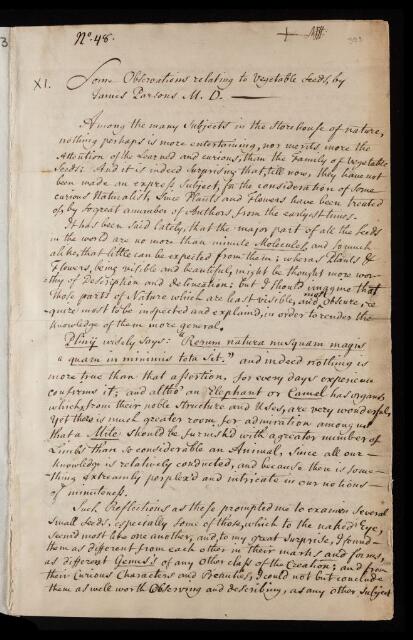 No. 48.
XI.
Some Observations relating to Vegetable Seeds, by
James Parsons M.D.
Among the many Subjects in the Storehouse of nature,
nothing perhaps is more entertaining, nor merits more the
Attention of the Learned and curious, than the Family of Vegetable
Seeds: And it is indeed Surprising that, till now, they have not
been made an express Subject, for the consideration of Some
curious Naturalist, Since Plants and Flowers have been treated
of, by so great a number of Authors from the earlyest times.
It has been Said lately, that the major part of all the Seeds
in the world are no more than minute Molecules, and so much
alike, that little can be expected from them; whereas Plants &
Flowers, being visible and beautiful, might be thought more wor-
thy of Description and delineation: but I should imagine that
those parts of Nature which are least visible, and most Obscure, re-
quire most to be inspected and explaind, in order to render the
knowledge of them more general.
Pliny wisely Says: "Rerum natura nusquam magis
"quam in minimis tota sit." and indeed nothing is
more true than that assertion, for every days experience
confirms it; and altho' an Elephant or Camel has organs
which, from their noble Structure and Uses, are very wonderful,
yet there is much greater room for admiration among us
that a Mite should be furnish'd with a greater number of
Limbs than so considerable an Animal, Since all our
knowledge is relatively conducted, and because there is some-
thing extreamly perplex'd and intricate in our notions
of minuteness.
Such Reflections as these prompted me to examin Several
Small Seeds, especially some of those, which to the naked Eye,
seem'd most like one another, and, to my great Surprise, I found
them as different from each other in their marks and forms,
as different Genus's of any other class of the Creation; and from
their Curious Characters and Beauties, I could not but conclude
them as well worth Observing and describing, as any other Subject